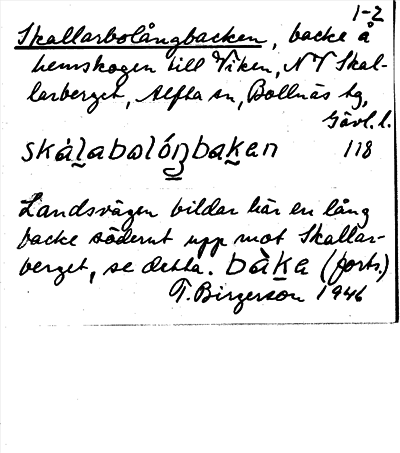 1-2
Skallarbolångbacken, backe å
hemskogen till Viken, NV Skal-
larberget, Alfta sn, Bollnäs tg,
Gävl.l.
skálabolóŋbaḵen 118
Landsvägen bildar här en lång
backe söderut upp mot Skallar-
berget, se detta. bàḵe (forts.)
T. Birgerson 1946